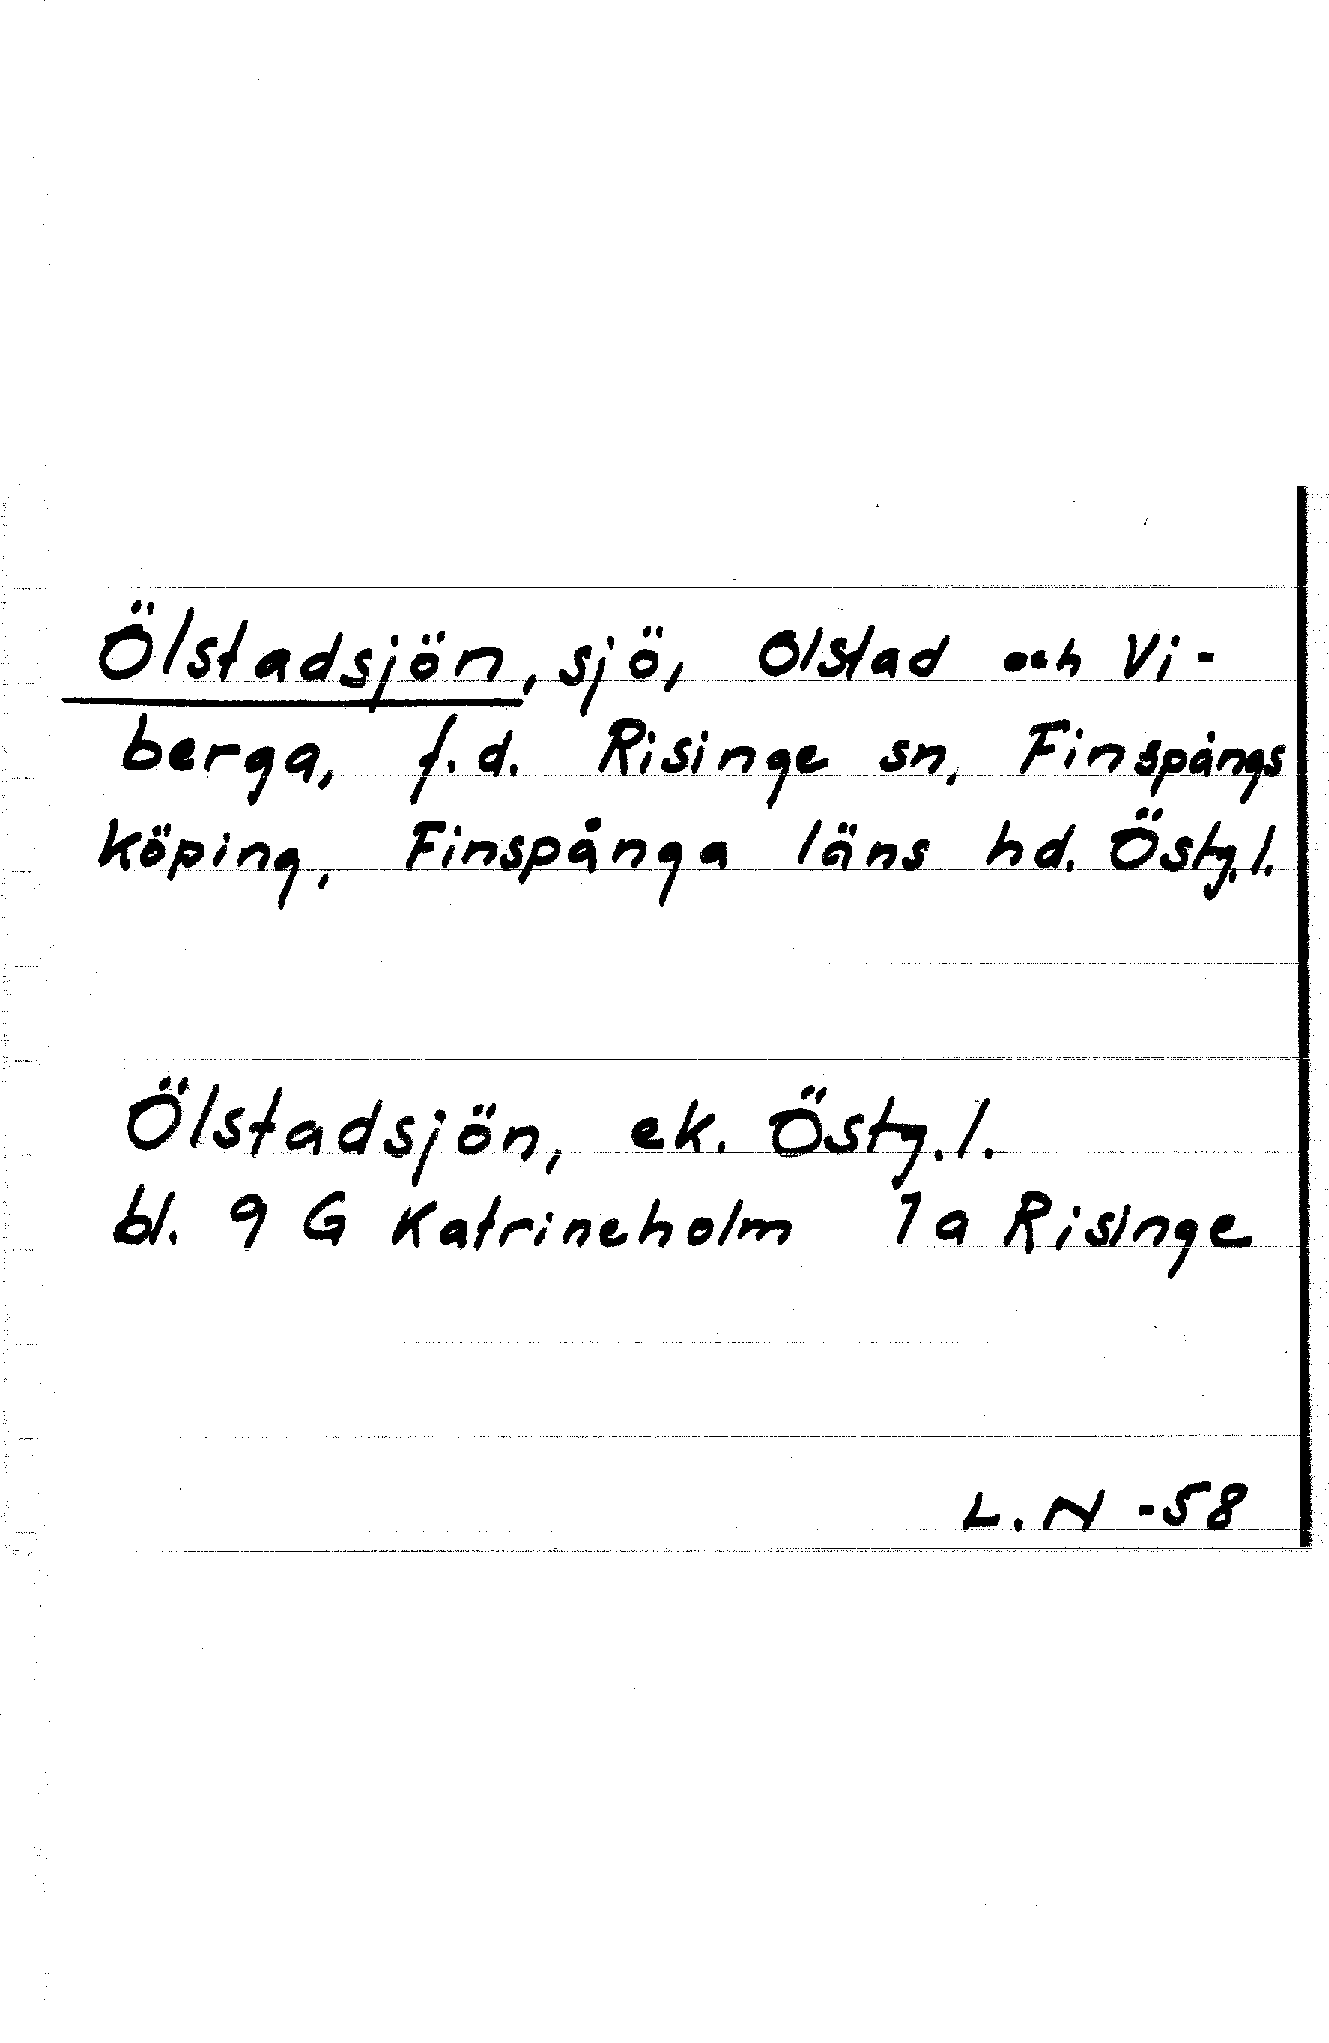 Ölstadsjön, sjö, Olstad och Vi-
berga, f.d. Risinge sn, Finspångs
köping, Finspånga läns hd. Östg.l.
Ölstadsjön, ek. Östg.l.
bl. 9 G Katrineholm 1a Risinge
L.N -58